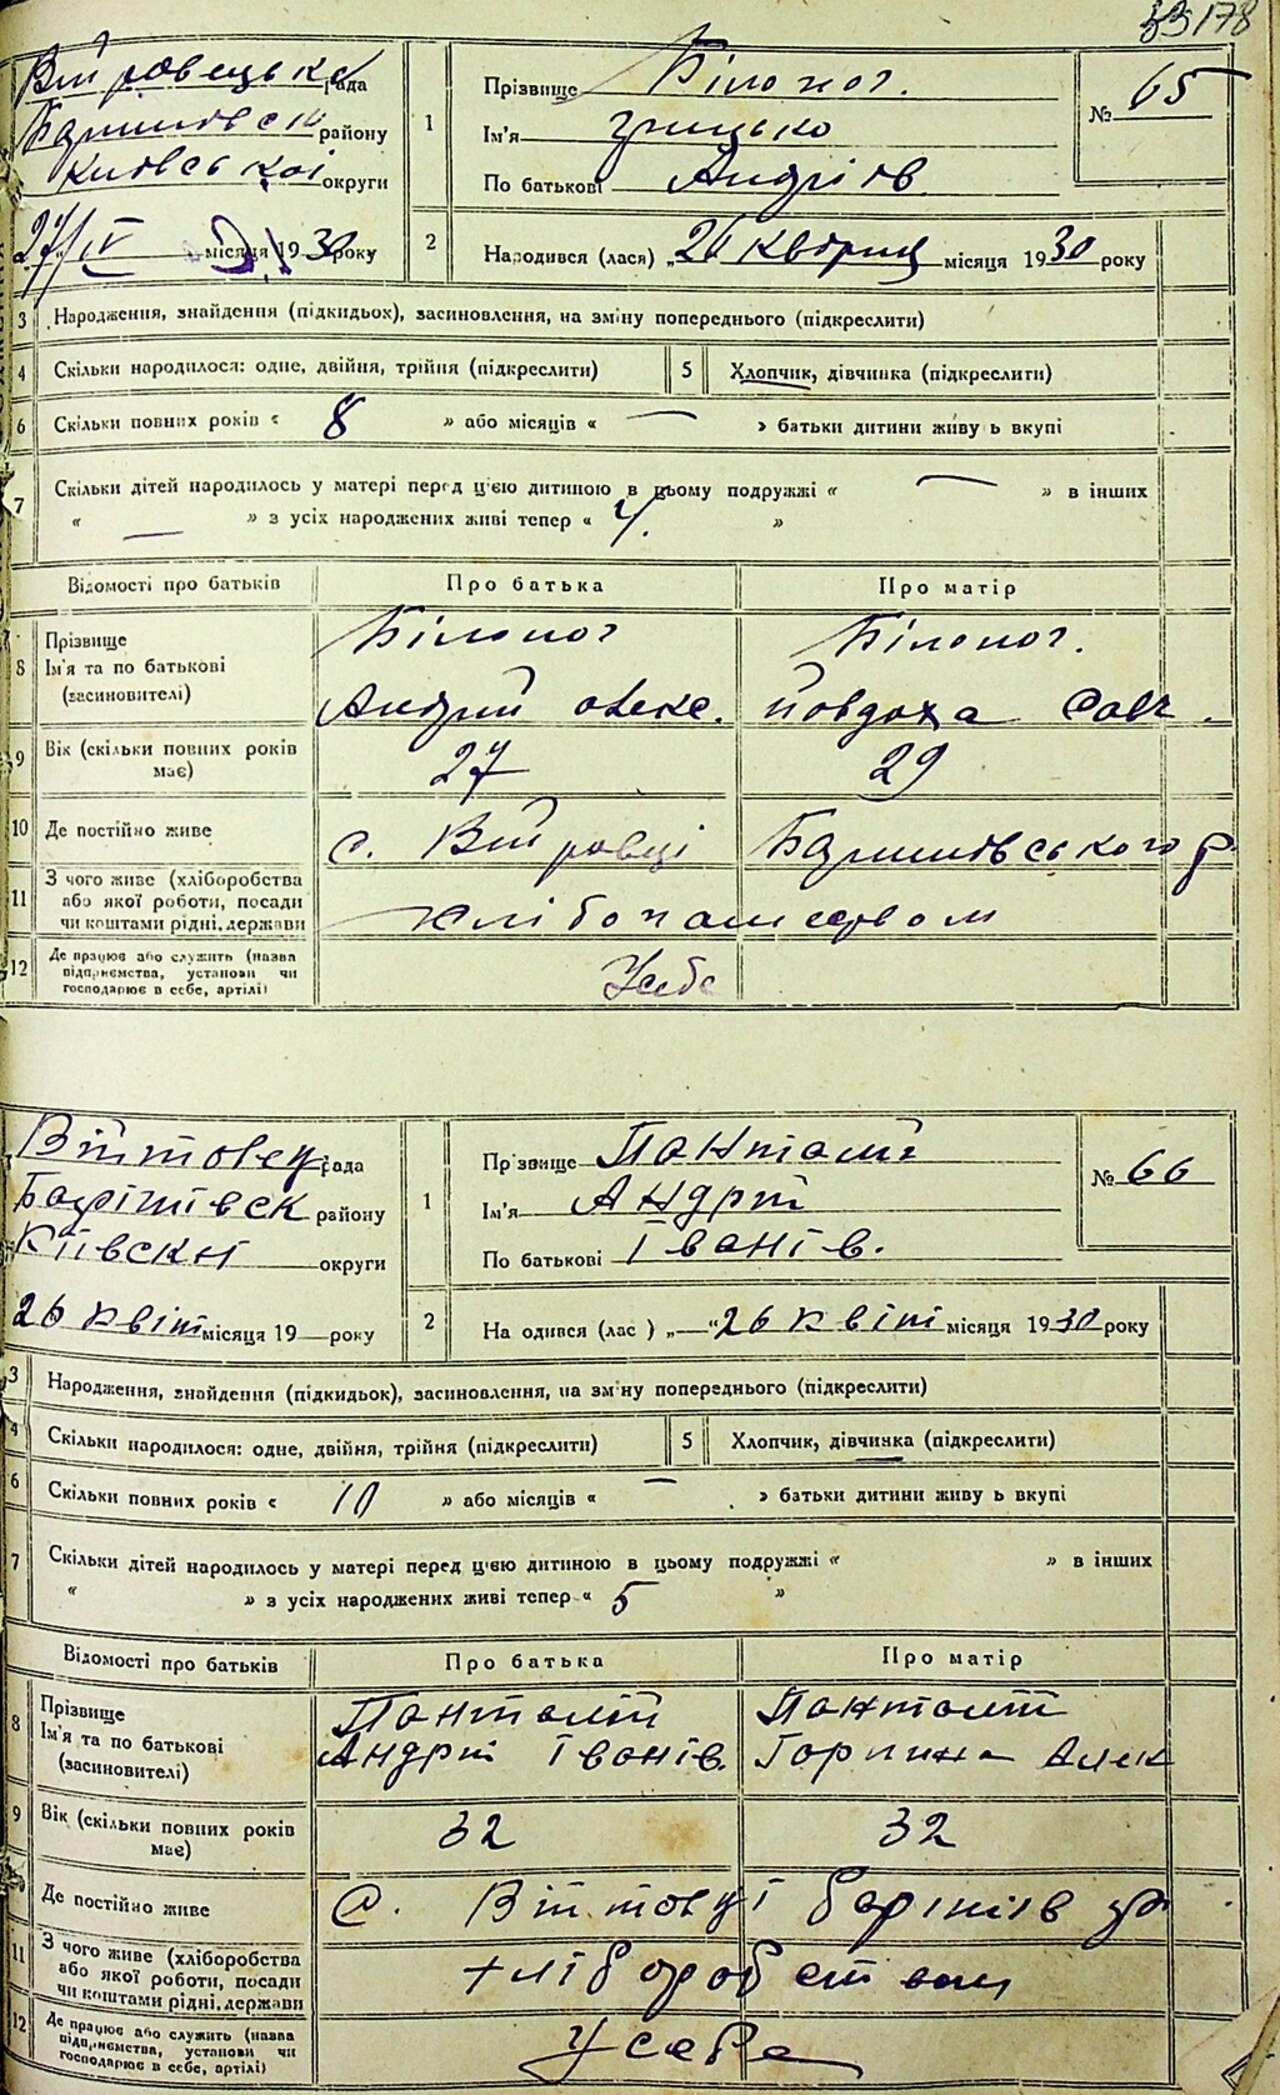 33 178
Війтовецька рада
Баришівськ району
Київської округи
27/IV місяця 1930 року
1
Прізвище Білоног.
Ім'я Грицько
По батькові Андріїв
№ 65
2
Народився (лася) „26 квітня місяця 1930 року
3 Народження, знайдення (підкидьох), засиновлення, на зміну попереднього (підкреслити)
4 Скільки народилося: одне, двійня, трійня (підкреслити) 5 Хлопчик, дівчинка (підкреслити)
6 Скільки повних років « 8 » або місяців « — » батьки дитини живу ь вкупі
7 Скільки дітей народилось у матері перед ц'єю дитиною в цьому подружжі « — » в інших
« — » з усіх народжених живі тепер « 4. »
Відомості про батьків Про батька Про матір
8 Прізвище
Ім'я та по батькові
(засиновителі)
Білоног Білоног.
Андрій Олекс. Йовдоха Савч.
9 Вік (скільки повних років
має) 27 29
10 Де постійно живе с. Війтовці Баришівського р.
11 З чого живе (хліборобства
або якої роботи, посади
чи коштами рідні, держави
хлібопашеством
12 Де працює або служить (назва
підприємства, установи чи
господарює в себе, артілі)
У себе
Війтовец рада
Барішівск району
Киівскні округи
26 Квіт місяця 19 — року
1
Пр звище Панталії
Ім'я Андрій
По батькові Іванів.
№ 66
2
На одився (лас ) „—“ 26 Квіт місяця 1930 року
3 Народження, знайдення (підкидьок), засиновлення, на зм ну попереднього (підкреслити)
4 Скільки народилося: одне, двійня, трійня (підкреслити) 5 Хлопчик, дівчинка (підкреслити)
6 Скільки повних років « 10 » або місяців « — » батьки дитини живу ь вкупі
7 Скільки дітей народилось у матері перед ц'єю дитиною в цьому подружжі « » в інших
« » з усіх народжених живі тепер « 5 »
Відомості про батьків Про батька Про матір
8 Прізвище
Ім'я та по батькові
(засиновителі)
Панталій Панталій
Андрій Іванів. Горпина Алек
9 Вік (скільки повних років
має) 32 32
Де постійно живе С. Війтовці Барішів р
11 З чого живе (хліборобства
або якої роботи, посади
чи коштами рідні, держави
хліборобством
12 Де працює або служить (назва
підприємства, установи чи
господарює в себе, артілі)
У себе